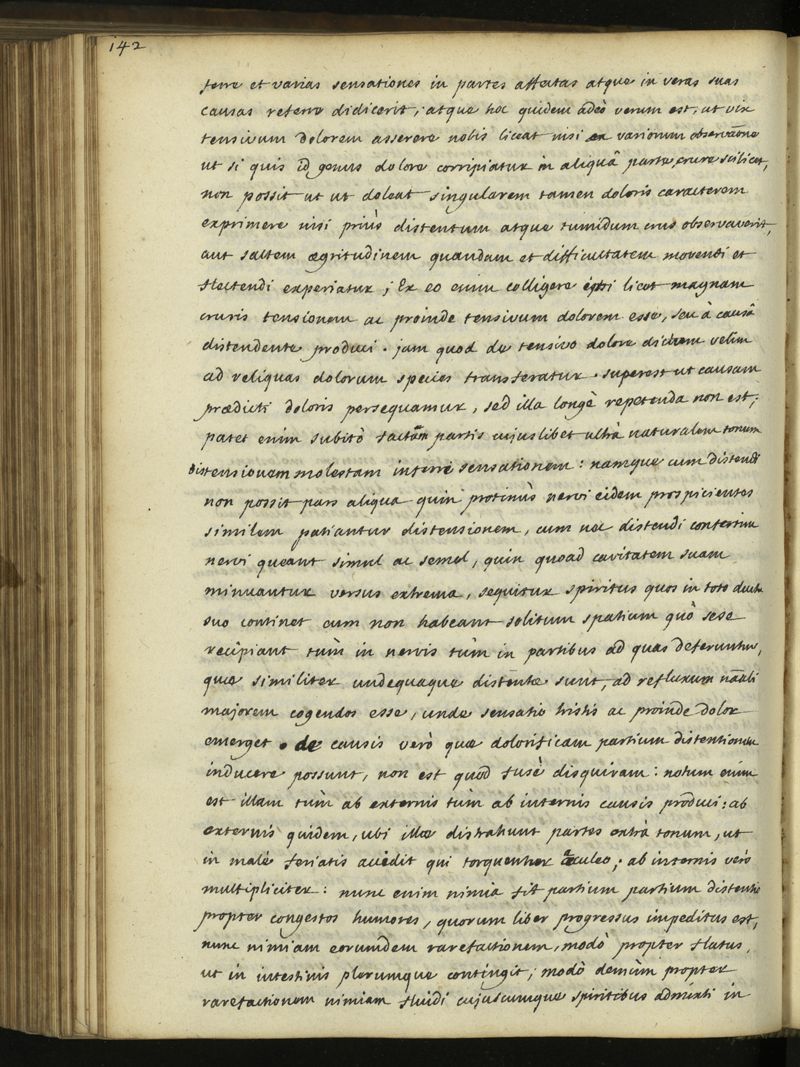 142
ferre et varias sensationes in partes affectas atque in veras suas
causas referre didicerit; atque hoc quidem adeò verum est, ut vix
tensivum dolorem asserere nobis liceat nisi ex variorum observatione
ut si quis id genus dolore corripiatur in aliquâ parte, crure scilicet,
non possit ut ut doleat singularem tamen doloris caracterem
exprimere nisi priùs distentum atque tumidum crus observaverit,
aut saltem ægritudinem quandam et difficultatem movendi et
flectendi experiatur; Ex eo enim colligere licet magnam
cruris tensionem ac proinde tensivum dolorem esse, seu à causâ
distendente produci. jam quod de tensivo dolore velim
ad reliquas dolorum species transferatur. superest ut causam
prædicti doloris persequamur, sed illa longè repetenda non est;
patet enim subitò factam partis cujuslibet ultrà naturalem tonum
distensionem molestam inferre sensationem: namque cum distendi
non possit pars aliqua quin protinùs nervi eidem prospicientes
similem patiantur distensionem, cum nec distendi confertim
nervi queant simul ac semel, quin quoad cavitatem suam
minuantur versus extrema, sequitur spiritus quos in toto ductu
suo continet cum non habeant solitum spatium quò sese
recipiant tùm in nervis tùm in partibus ad quas deferuntur,
quæ similiter undequaque distentæ sunt, ad refluxum nãali
majorem cogendos esse, unde sensatio tristis ac proinde dolor
emerget. de causis verò quæ dolorificam partium distentionem
inducere possunt, non est quòd fusè disquiram: notum enim
est illam tùm ab externis tùm ab internis causis produci: ab
externis quidem, ubi illæ distrahunt partes extrà tonum, ut
in malè feriatis accidit qui torquentur aculeo; ab internis verò
multipliciter: nunc enim nimia fit partium partium distentio
propter congestos humores, quorum liber progressus impeditus est,
nunc nimiam eorumdem rarefactionem, modò propter flatus,
ut in intestinis plerumque contingit; modò demùm propter
rarefactionem nimiam fluidi cujuscumque spiritibus admixti in